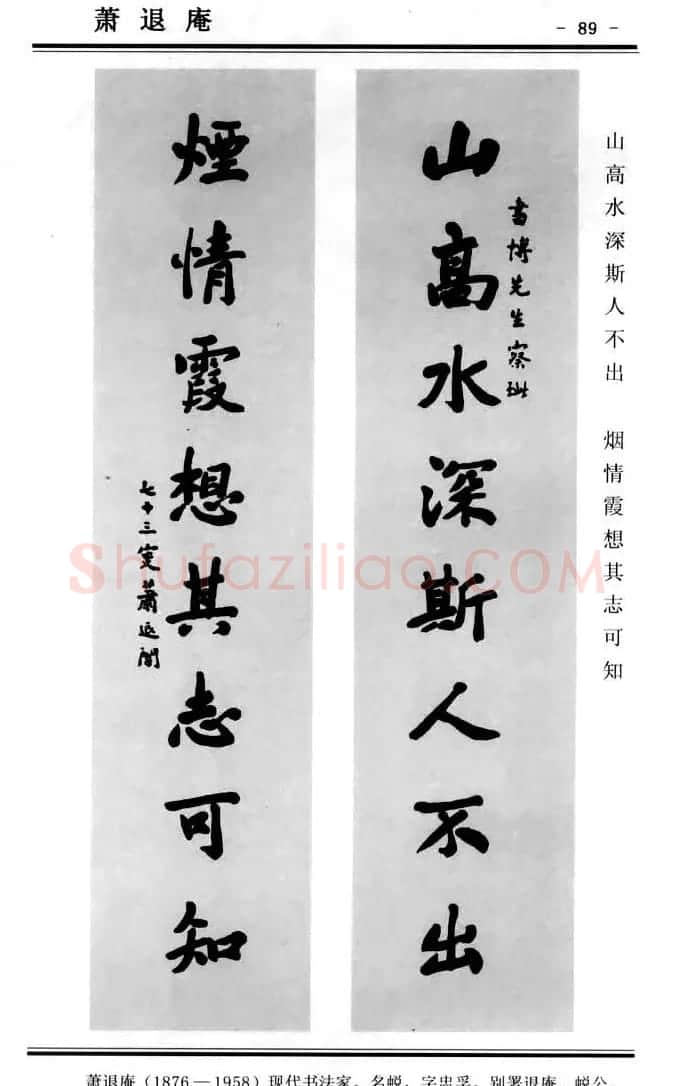 萧退庵
- 89 -
山高水深斯人不出 烟情霞想其志可知
書博先生察
山高水深斯人不出
煙情霞想其志可知
七十三叟蕭退闇
Shufaziliao.COM
萧退庵（1876—1958）现代书法家。名蜕，字忠孚，别署退庵、蜕公、